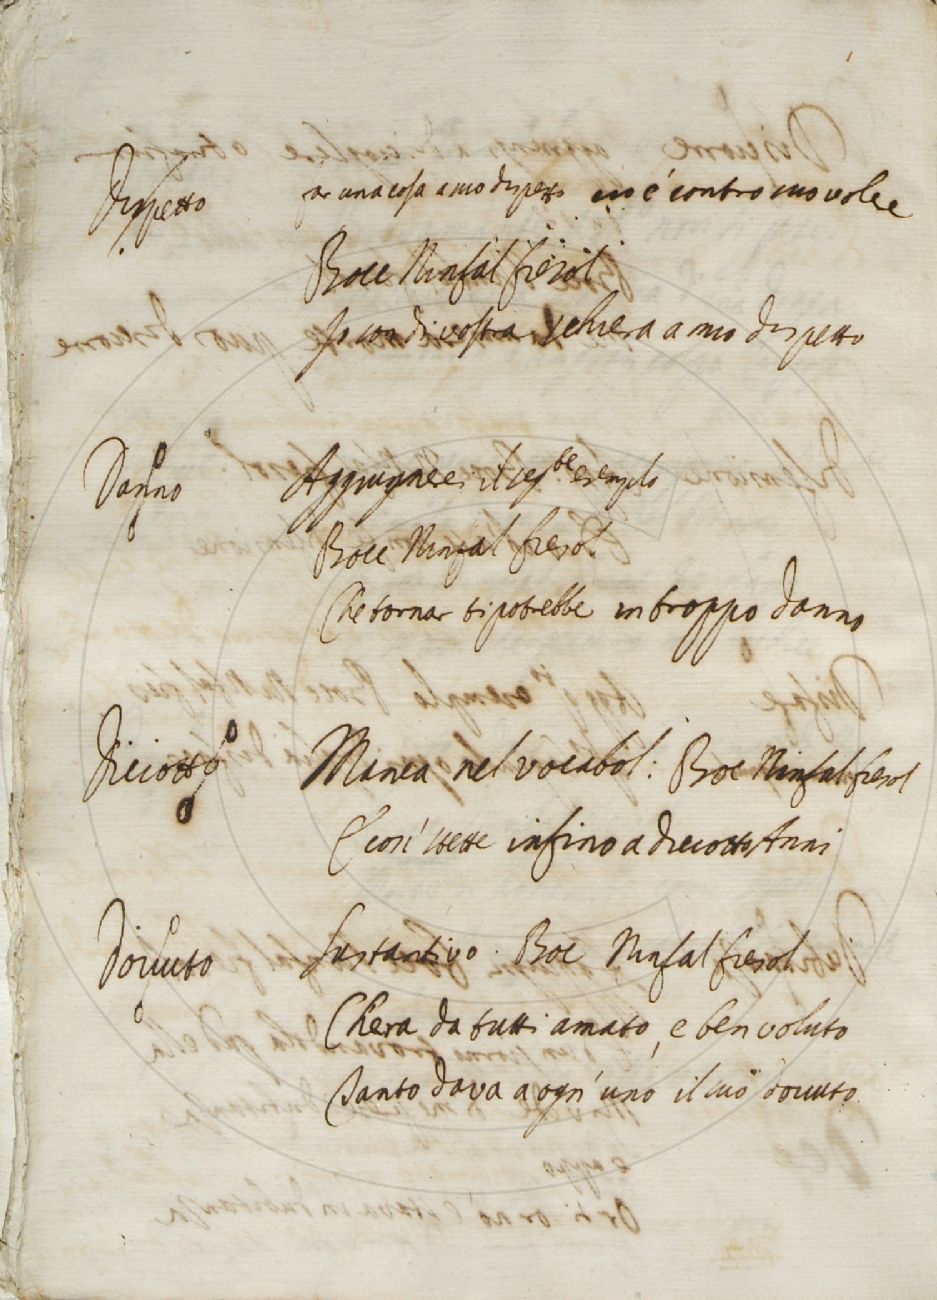 Dispetto far una cosa a mio dispetto cio è contro mio volere
Bocc Ninfal fiesol
Io son di vostra schiera a mio dispetto
Danno Aggiugnere il seg.te esemplo
Bocc Ninfal fiesol
Che tornar ti potrebbe in troppo danno
Diciotto Manca nel vocabol: Boc Ninfal fiesol
E così stette infino a diciotto Anni
Dovuto Sustantivo. Boc Ninfal fiesol
Chera da tutti amato, e ben voluto
Tanto dava a ogn'uno il suo dovuto